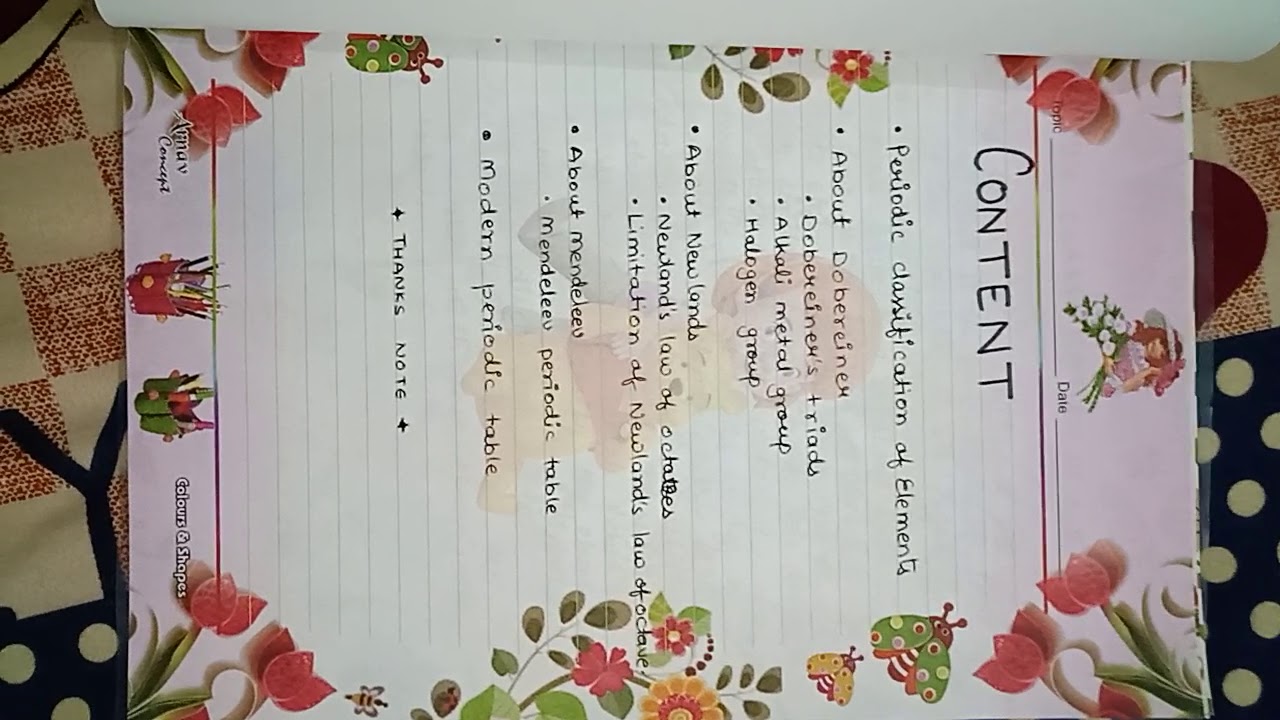 Topic
Date
CONTENT
• Periodic classification of Elements
• About Dobereiner
• Dobereiner's triads
• Alkali metal group
• Halogen group
• About Newlands
• Newland's law of octaves
• Limitation of Newland's law of octave
• About mendeleev
• mendeleev periodic table
• Modern periodic table
✦ THANKS NOTE ✦
Arnav
Concept
Colours & Shapes